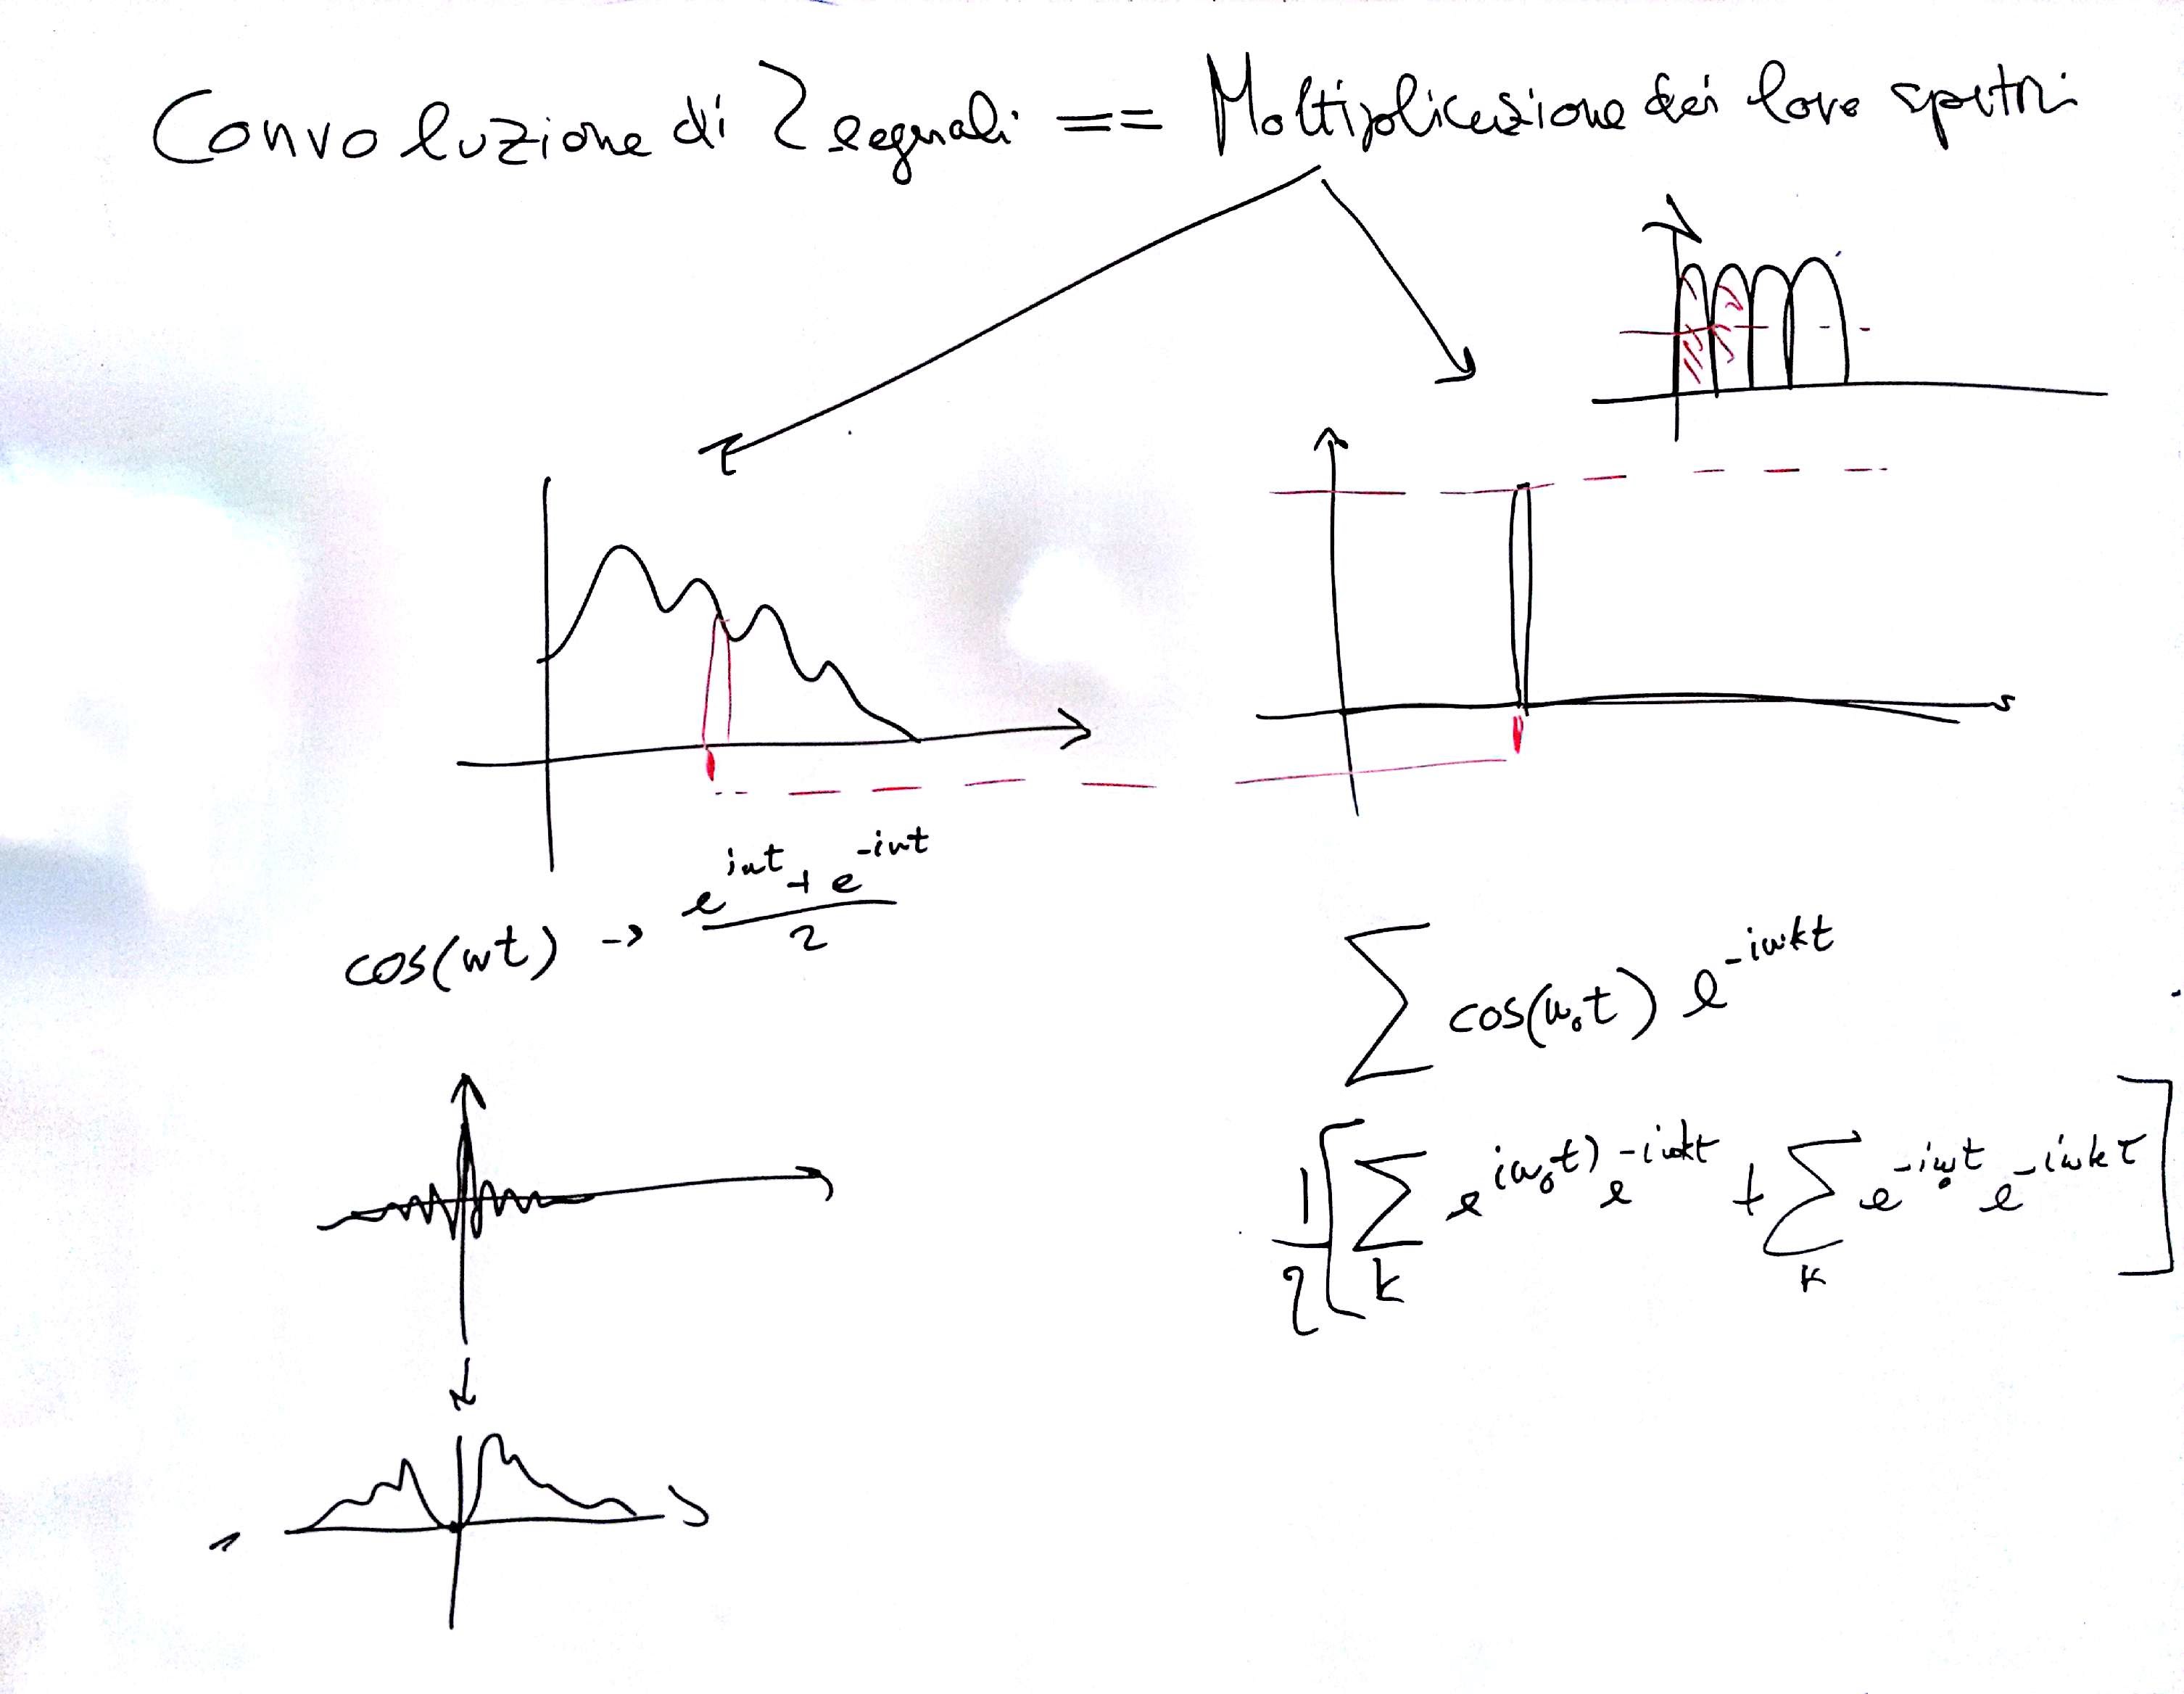 Convoluzione di 2 segnali == Moltiplicazione dei loro spettri
cos(wt) -> e^{iwt} + e^{-iwt} / 2
∑ cos(w₀t) e^{-iwkt}
1/2 [ ∑_k e^{iw₀t)} e^{-iwkt} + ∑_k e^{-iw₀t} e^{-iwkt} ]